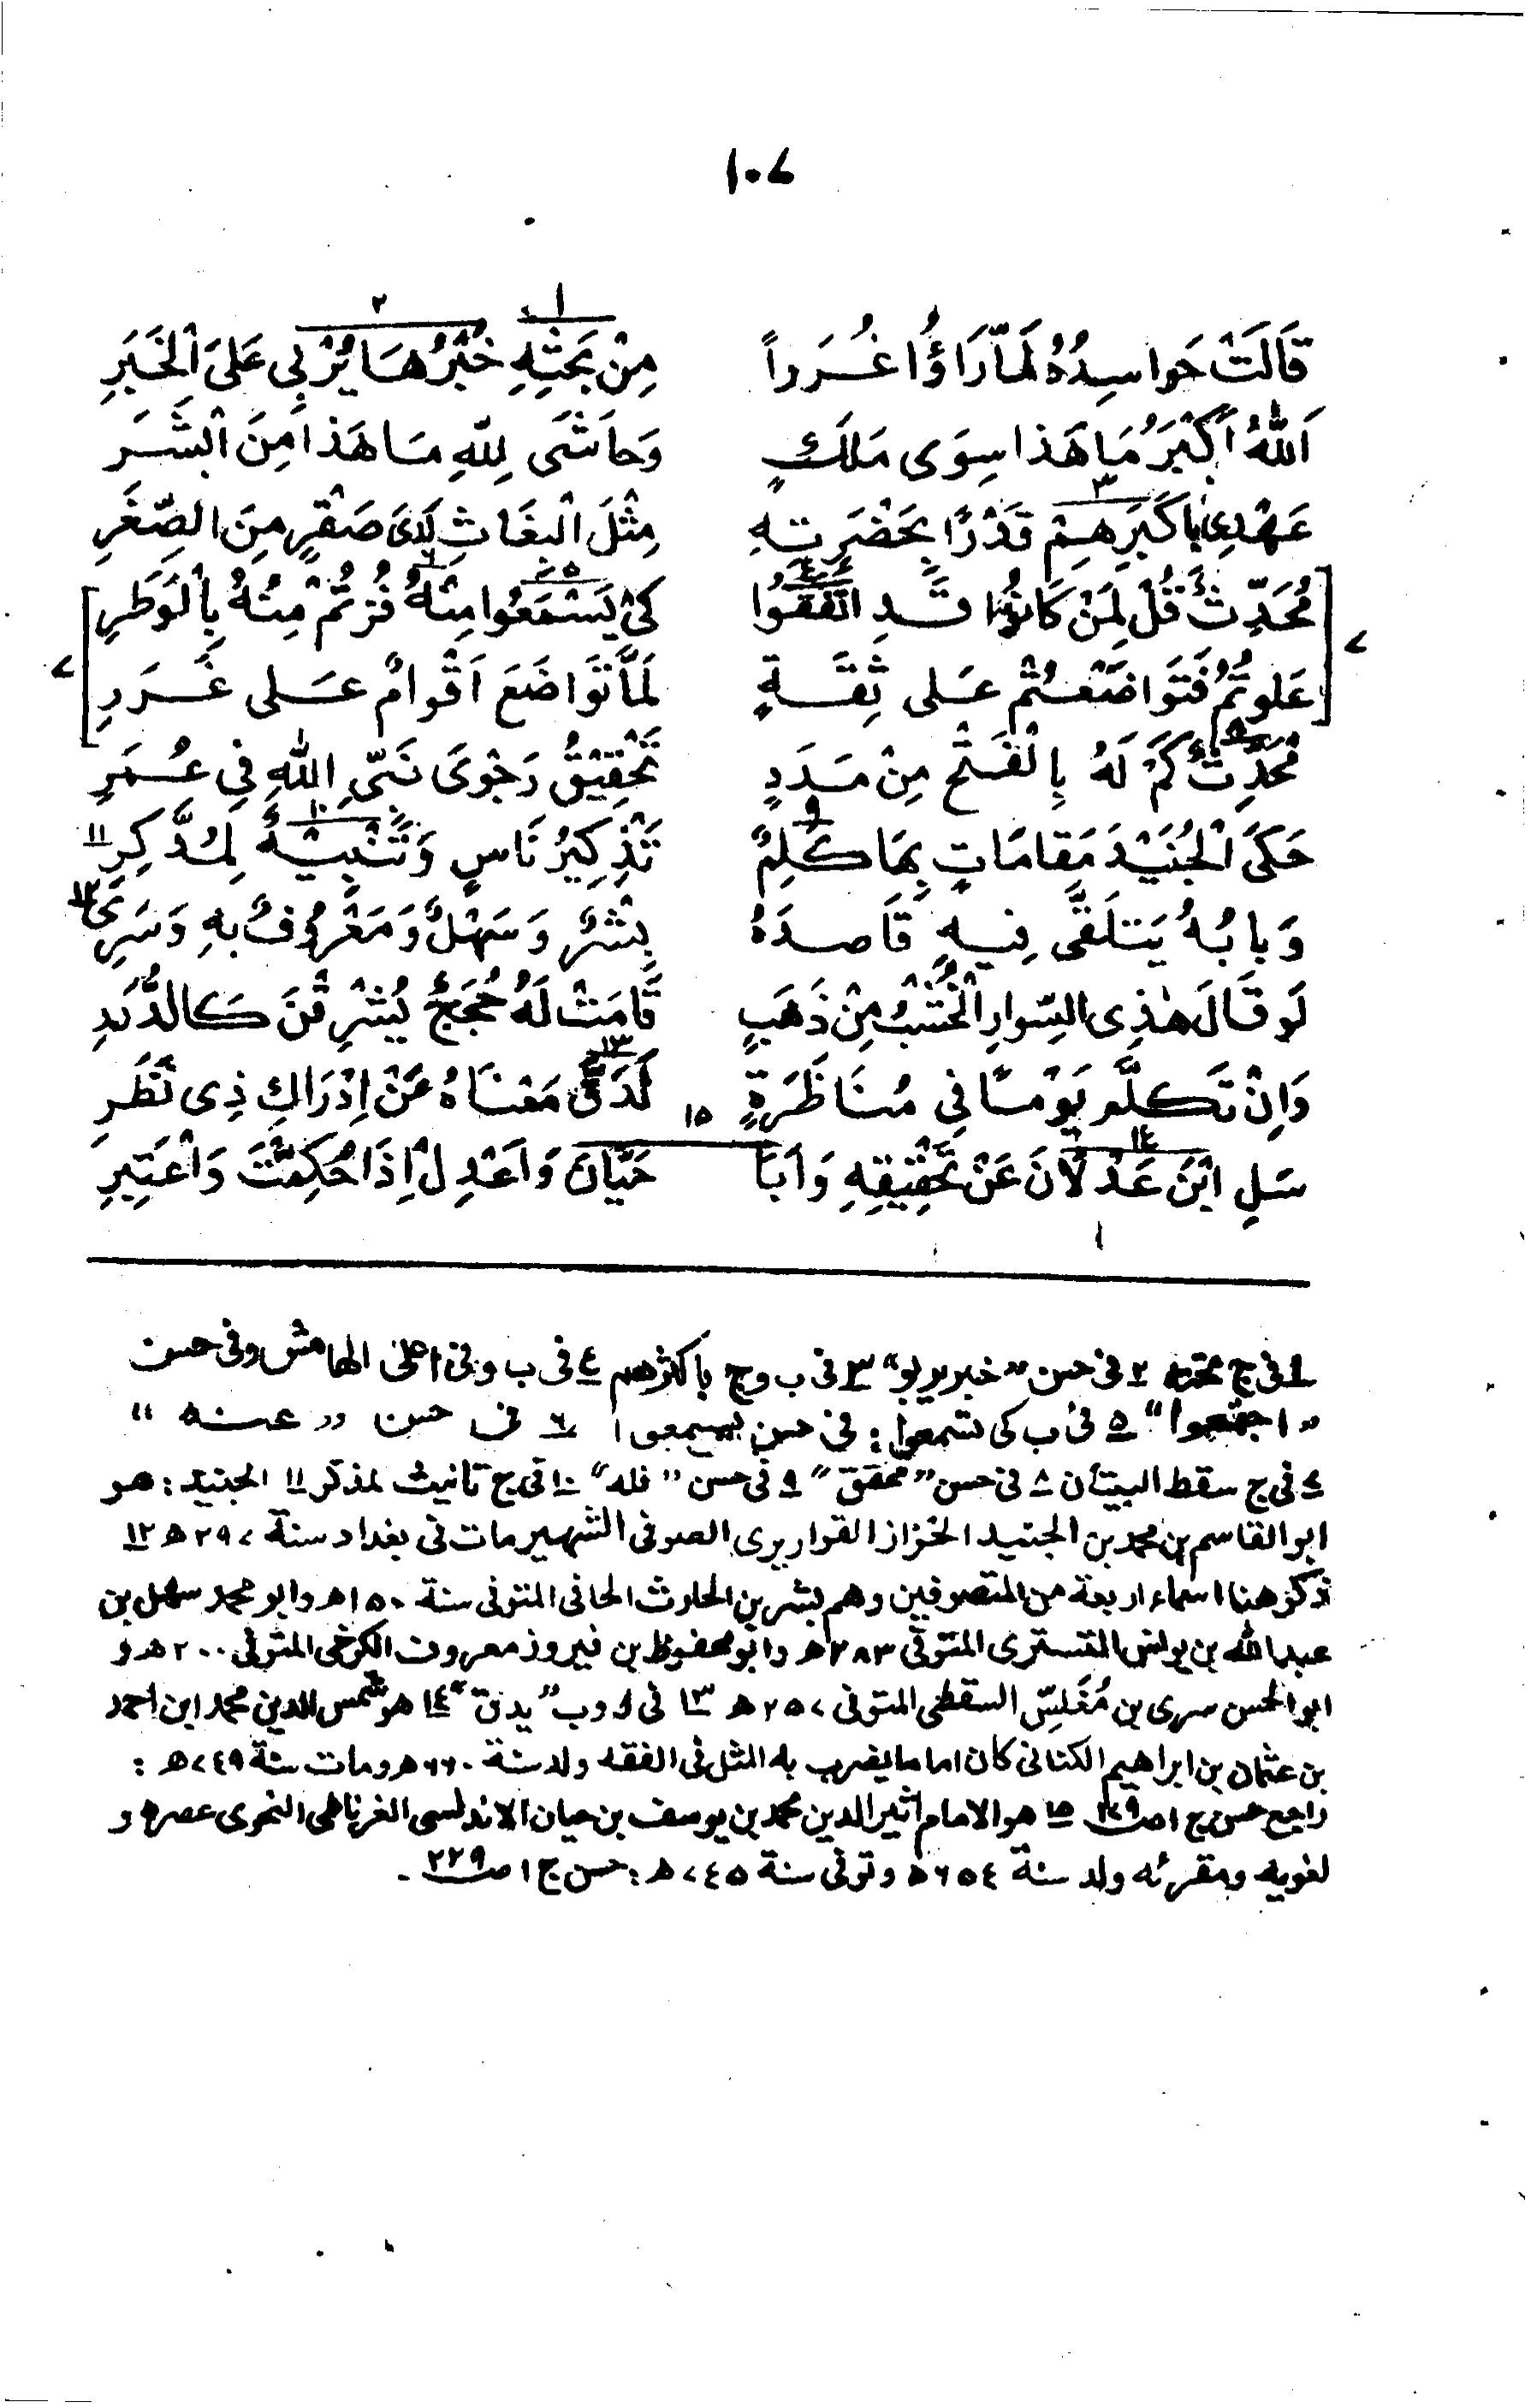 ١٠٧
قَالَتْ حَواسِدُهُ لَمَّا رَاَؤُا غُرَراً مِنْ بَحْثِهِ خُبْرُهَا يُرْبِي عَلَى الْخَبَرِ
اَللّٰهُ اَكْبَرُ مَا هَذا سِوَى مَلَكٍ وَحاَشَى لِلّٰهِ مَا هَذا مِنَ الْبَشَرِ
عَهْدِى بِاَكبَرِهِمْ قَدْرًا بِحَضْرَتِهِ مِثْلَ الْبغَاثِ لَدَى صَقْرٍ مِنَ الصِّغَرِ
مُحَدِّثٌ قُلْ لِمَنْ كَانُوا قَدِ اتَّفَقُوا كَىْ يَسْمَعُوا مِنْهُ فُزْتُمْ مِنْهُ بِالْوَطَرِ
عَلوتُمُ فَتَوَاضَعْتُمْ عَلى ثِقَةٍ لَمَّا تَوَاضَعَ اَقْوامٌ عَلى غَرَرِ
مُحَدِّثٌ كَمْ لَهُ بِالْفَتْحِ مِنْ مَدَدٍ تَحْقِيْقُ رَجْوَى نَبِّي اللّٰهِ فِي عُمَرِ
حَكَى الْجُنَيْدَ مَقامَاتٍ بِهَا كَلِمٌ تَذْكِيرُ نَاسٍ وَتَنْبِيْهٌ لِمُدَّكِرِ
وَبابُهُ يَتلَقَّى فِيهِ قَاصدَهُ بِشْرٌ وَسَهْلٌ وَمَعْرُوْفٌ بهِ وَسَرِى
لَو قَالَ هٰذِى السِّوارِ الْخُشْبُ مِنْ ذَهَبٍ قَامَتْ لَهُ حُجَجٌ يُشْرِقْنَ كَالدُّرَرِ
وَاِنْ تَكلَّم يَوْمًا فِي مُنَاظَرَةٍ لَدَقَّ مَعْنَاهُ عَنْ اِدْرَاكِ ذِى نَظَرِ
سَلِ ابْنَ عَدْلَانَ عَنْ تَحْقِيْقِهِ وَاَبَا حَيَّانَ وَاعْدِلْ اِذَا حُكِمْتَ وَاعْتَبِرِ
١ فى ج ٢ فى حسن "خبر يربو" ٣ فى ب وج باكثرهم ٤ فى ب وفى اعلى الهامش وفى حسن
"اجتمعوا" ٥ فى ب كى تسمعوا: فى حسن يسمعوا ٦ فى حسن "عنه"
٧ فى ج سقط البيتان ٨ فى حسن "محقق" ٩ فى حسن "فله" ١٠ فى ج تانيث لمذكر ١١ الجنيد: هو
ابو القاسم بن محمد بن الجنيد الخزاز القواريرى الصوفى الشهير مات فى بغداد سنة ٢٩٧ھ ١٢
تذكر هنا اسماء اربعة من المتصوفين وهم بشر بن الحارث الحافى المتوفى سنة ١٥٠ھ وابو محمد سهل بن
عبد الله بن يونس التسترى المتوفى ٢٨٣ھ وابو محفوظ بن فيروز معروف الكرخى المتوفى ٢٠٠ھ و
ابو الحسن سرى بن مُغَلِسّ السقطى المتوفى ٢٥٧ھ ١٣ فى ا وب "يدق" ١٤ هو شمس الدين محمد ابن احمد
بن عثمان بن ابراهيم الكنانى كان اماما يضرب به المثل فى الفقه ولد سنة ٦٦٠ھ ومات سنة ٧٤٩ھ:
راجع حسن ج ١ ص ١٥ هو الامام اثير الدين محمد بن يوسف بن حيان الاندلسى الغرناطى النحوى عصره و
لغويه ومقرئه ولد سنة ٦٥٤ھ وتوفى سنة ٧٤٥ھ: حسن ج ١ ص ٢٢٩ -